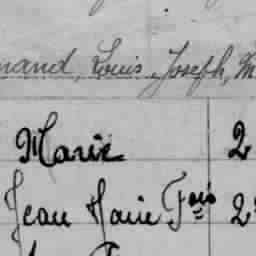 nand, Louis, Joseph, M
Marie 2
Jean Marie Fois 2